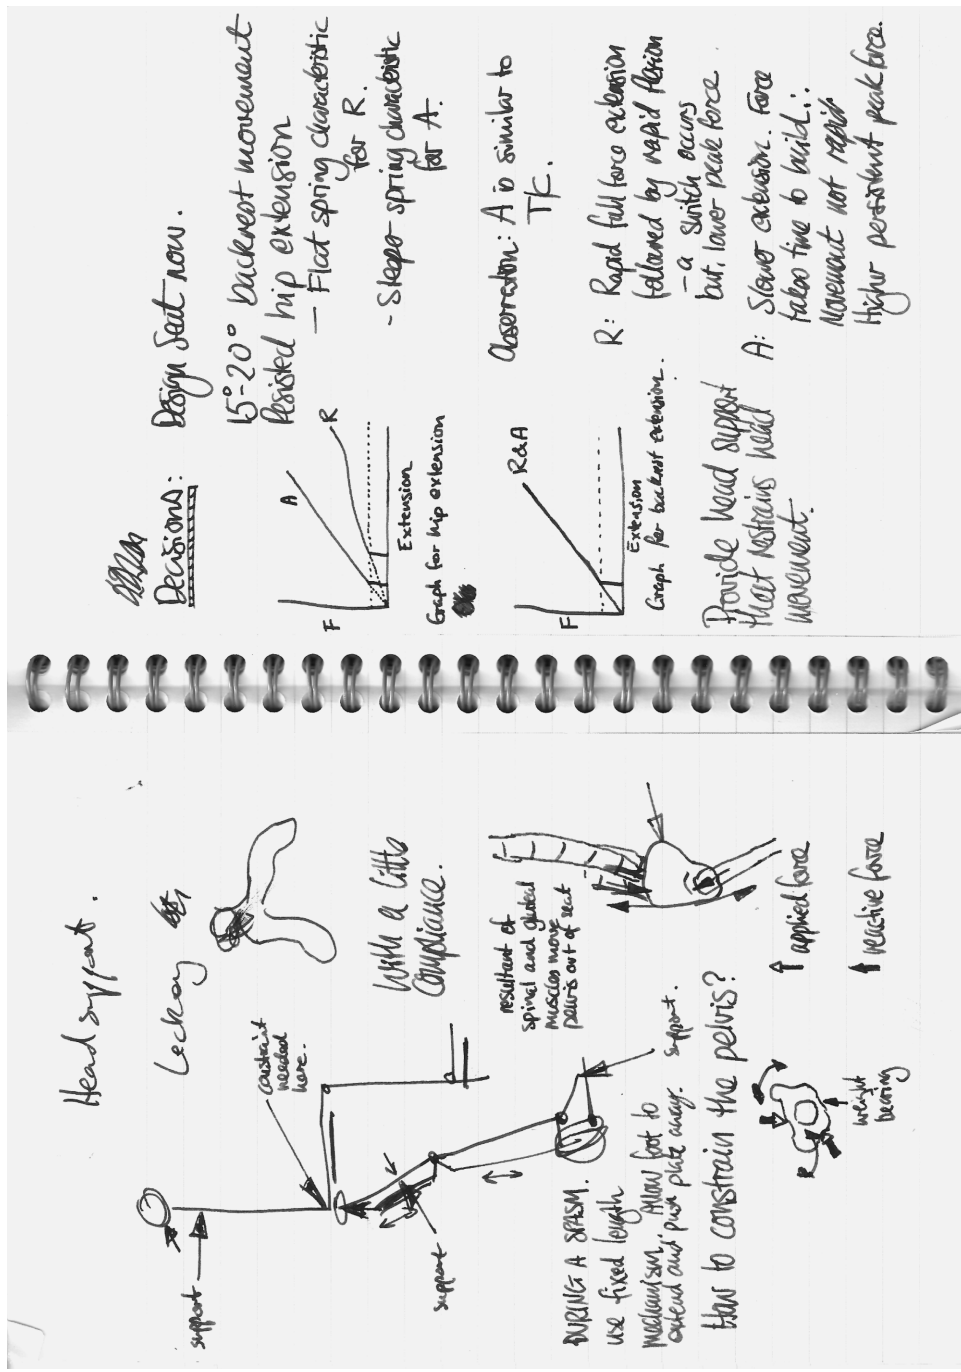 Head support.
Leckey
constraint
needed
here.
support
support
With a little
compliance.
resultant of
spinal and gluteal
muscles move
pelvis out of seat
DURING A SPASM.
use fixed length
mechanism. Allow foot to
extend and push plate away.
support.
How to constrain the pelvis?
weight
bearing
applied force
reactive force
Decisions:
Design Seat now.
15°-20° backrest movement
Resisted hip extension
- Flat spring characteristic
for R.
- Steeper spring characteristic
for A.
F
A
R
Extension
Graph for hip extension
Observation: A is similar to
TK.
F
R&A
Extension
Graph for backrest extension.
R: Rapid full force extension
followed by rapid flexion
- a switch occurs
but, lower peak force.
Provide head support
that restrains head
movement.
A: Slower extension. Force
takes time to build ∴
Movement not rapid
Higher persistent peak force.